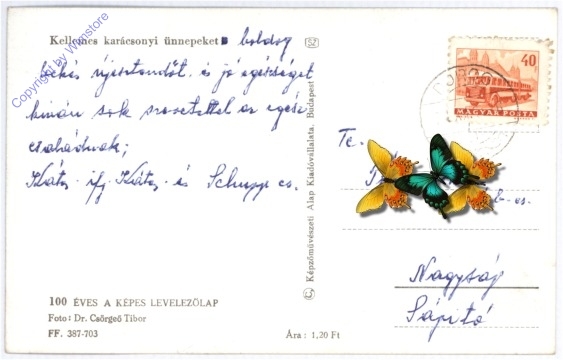 Kellemes karácsonyi ünnepeket boldog
békés újesztendőt és jó egészséget
kíván sok szeretettel az egész
családnak;
Kátz ifj. Kátz és Schupp cs.
100 ÉVES A KÉPES LEVELEZŐLAP
Foto: Dr. Csörgeő Tibor
FF. 387-703
Ára: 1,20 Ft
© Képzőművészeti Alap Kiadóvállalata, Budapest
40
MAGYAR POSTA
DOROG
Te.
Nagysáp
Sápitó
Copyright by Wunstore